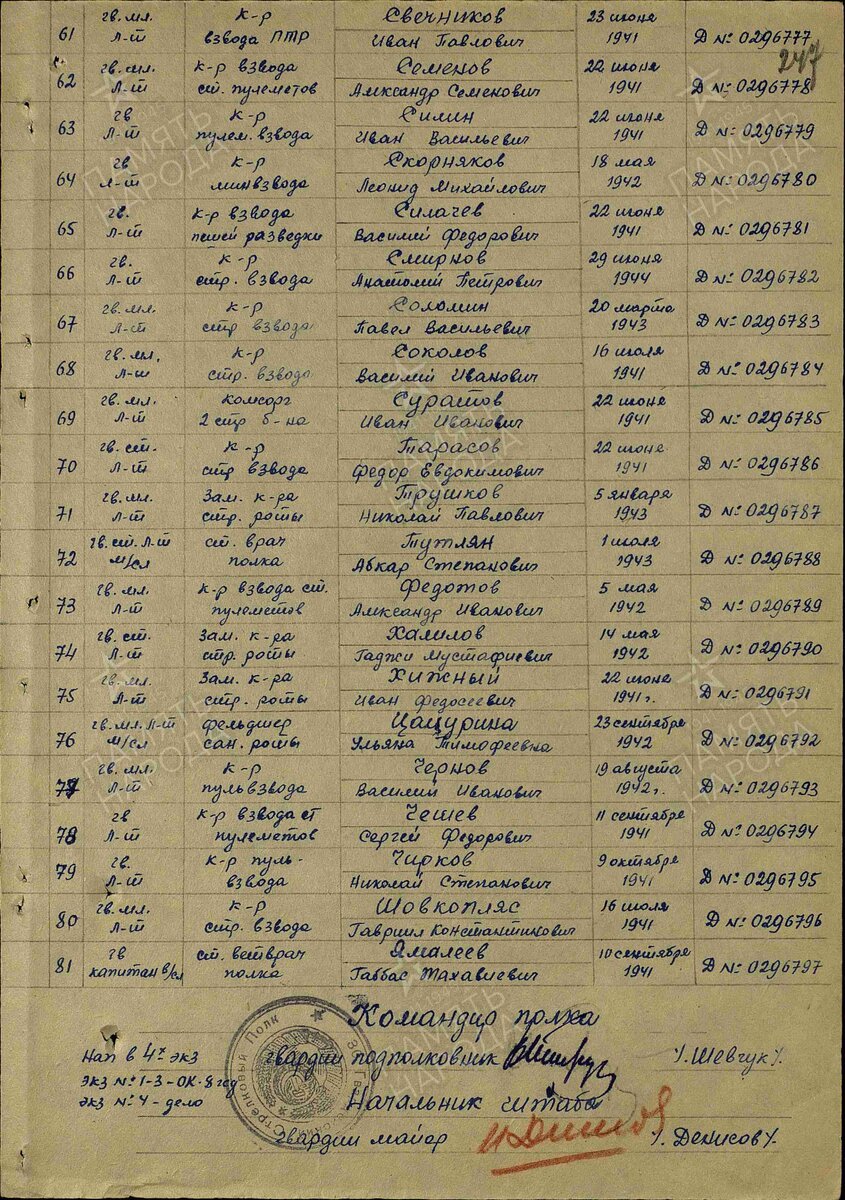 61 гв. мл. л-т к-р взвода ПТР Свечников Иван Павлович 23 июня 1941 Д № 0296777
247
62 гв. мл. л-т к-р взвода ст. пулеметов Семенов Александр Семенович 22 июня 1941 Д № 0296778
63 гв л-т к-р пулем. взвода Силин Иван Васильевич 22 июня 1941 Д № 0296779
64 гв л-т к-р минвзвода Скорняков Леонид Михайлович 18 мая 1942 Д № 0296780
65 гв. л-т к-р взвода пешей разведки Силачев Василий Федорович 22 июня 1941 Д № 0296781
66 гв. л-т к-р стр. взвода Смирнов Анатолий Петрович 29 июня 1944 Д № 0296782
67 гв. мл. л-т к-р стр взвода Соломин Павел Васильевич 20 марта 1943 Д № 0296783
68 гв. мл. л-т к-р стр. взвода Соколов Василий Иванович 16 июля 1941 Д № 0296784
69 гв. мл. л-т комсорг 2 стр б-на Суратов Иван Иванович 22 июня 1941 Д № 0296785
70 гв. ст. л-т к-р стр взвода Тарасов Федор Евдокимович 22 июня 1941 Д № 0296786
71 гв. мл. л-т Зам. к-ра стр. роты Трушков Николай Павлович 5 января 1943 Д № 0296787
72 гв. ст. л-т м/сл ст. врач полка Тутлян Абкар Степанович 1 июля 1943 Д № 0296788
73 гв. мл. л-т к-р взвода ст. пулеметов Федотов Александр Иванович 5 мая 1942 Д № 0296789
74 гв. ст. л-т Зам. к-ра стр. роты Халилов Гаджи Мустафиевич 14 мая 1942 Д № 0296790
75 гв. мл. л-т Зам. к-ра стр. роты Хижный Иван Федосеевич 22 июня 1941 г. Д № 0296791
76 гв. мл. л-т м/сл фельдшер сан. роты Цацурина Ульяна Тимофеевна 23 сентября 1942 Д № 0296792
77 гв. мл. л-т к-р пульвзвода Чернов Василий Иванович 19 августа 1942 г. Д № 0296793
78 гв л-т к-р взвода ст пулеметов Чешев Сергей Федорович 11 сентября 1941 Д № 0296794
79 гв. л-т к-р пуль-взвода Чирков Николай Степанович 9 октября 1941 Д № 0296795
80 гв. мл. л-т к-р стр. взвода Шовкопляс Гавриил Константинович 16 июля 1941 Д № 0296796
81 гв капитан в/сл ст. ветврач полка Ямалеев Габбас Махавиевич 10 сентября 1941 Д № 0296797
Командир полка
Нап в 4х экз гвардии подполковник /Шевчук/
экз № 1-3-ОК-8 гсд
экз № 4-дело Начальник штаба
гвардии майор /Денисов/
Стрелковый Полк
ПАМЯТЬ НАРОДА